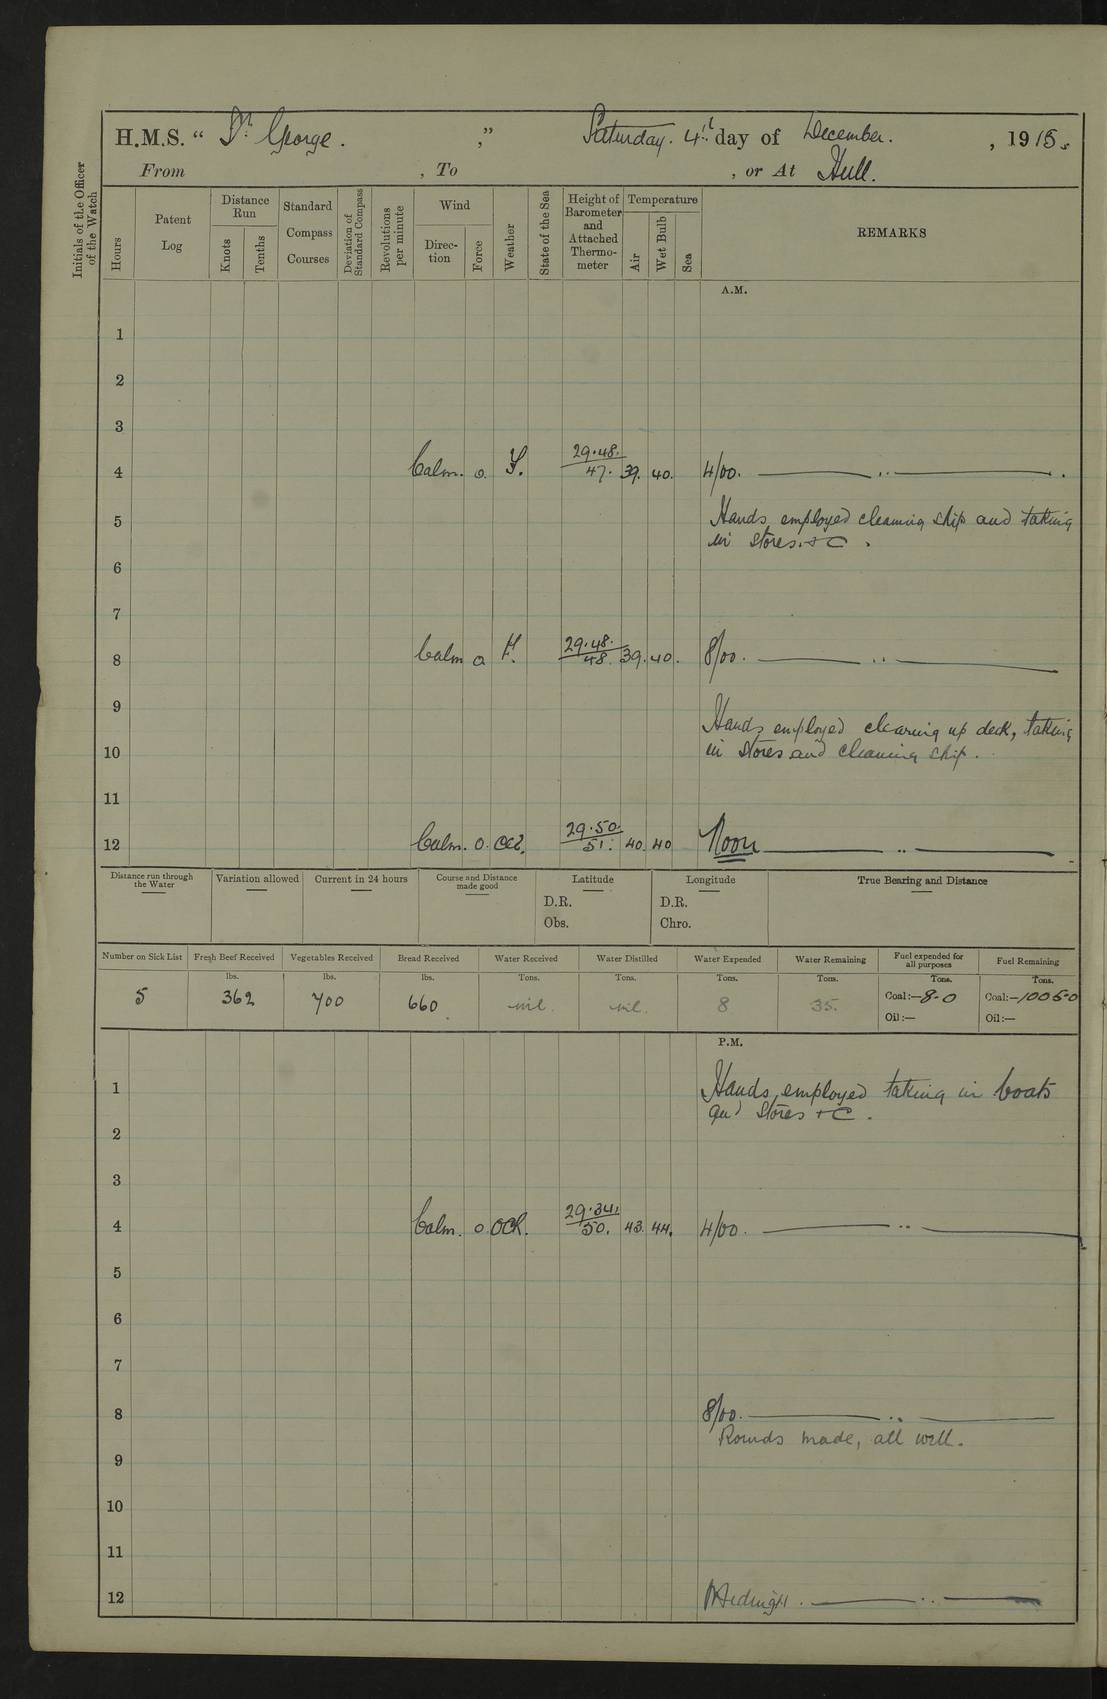 H.M.S. “ St. George. ,” Saturday. 4th day of December. , 1915.
From , To , or At Hull.
Initials of the Officer of the Watch
Hours
Patent Log
Distance Run
Knots
Tenths
Standard Compass Courses
Deviation of Standard Compass
Revolutions per minute
Wind
Direc- tion
Force
Weather
State of the Sea
Height of Barometer and Attached Thermo- meter
Temperature
Air
Wet Bulb
Sea
REMARKS
A.M.
1
2
3
4 Calm. 0. F. 29.48. 47. 39. 40. 4/00. ——— .. ——— .
5 Hands employed cleaning ship and taking
in stores. + C .
6
7
8 Calm 0 F. 29.48. 48. 39. 40. 8/00. ——— .. ———
9 Hands employed clearing up deck, taking
10 in stores and cleaning ship.
11
12 Calm. 0. 29.50. 51. 40. 40 Noon ——— .. ———
Distance run through the Water
Variation allowed
Current in 24 hours
Course and Distance made good
Latitude
D.R.
Obs.
Longitude
D.R.
Chro.
True Bearing and Distance
Number on Sick List
Fresh Beef Received
Vegetables Received
Bread Received
Water Received
Water Distilled
Water Expended
Water Remaining
Fuel expended for all purposes
Fuel Remaining
lbs. lbs. lbs. Tons. Tons. Tons. Tons. Tons. Tons.
5 362 700 660 nil nil. 8 35. Coal:—8-0 Coal:—1005-0
Oil:— Oil:—
P.M.
1 Hands employed taking in boats
and stores + C .
2
3
4 Calm. 0. OCR. 29.34. 50. 43. 44. 4/00. ——— .. ———
5
6
7
8 8/00. ——— .. ———
Rounds made, all well.
9
10
11
12 Midnight . ——— .. ———